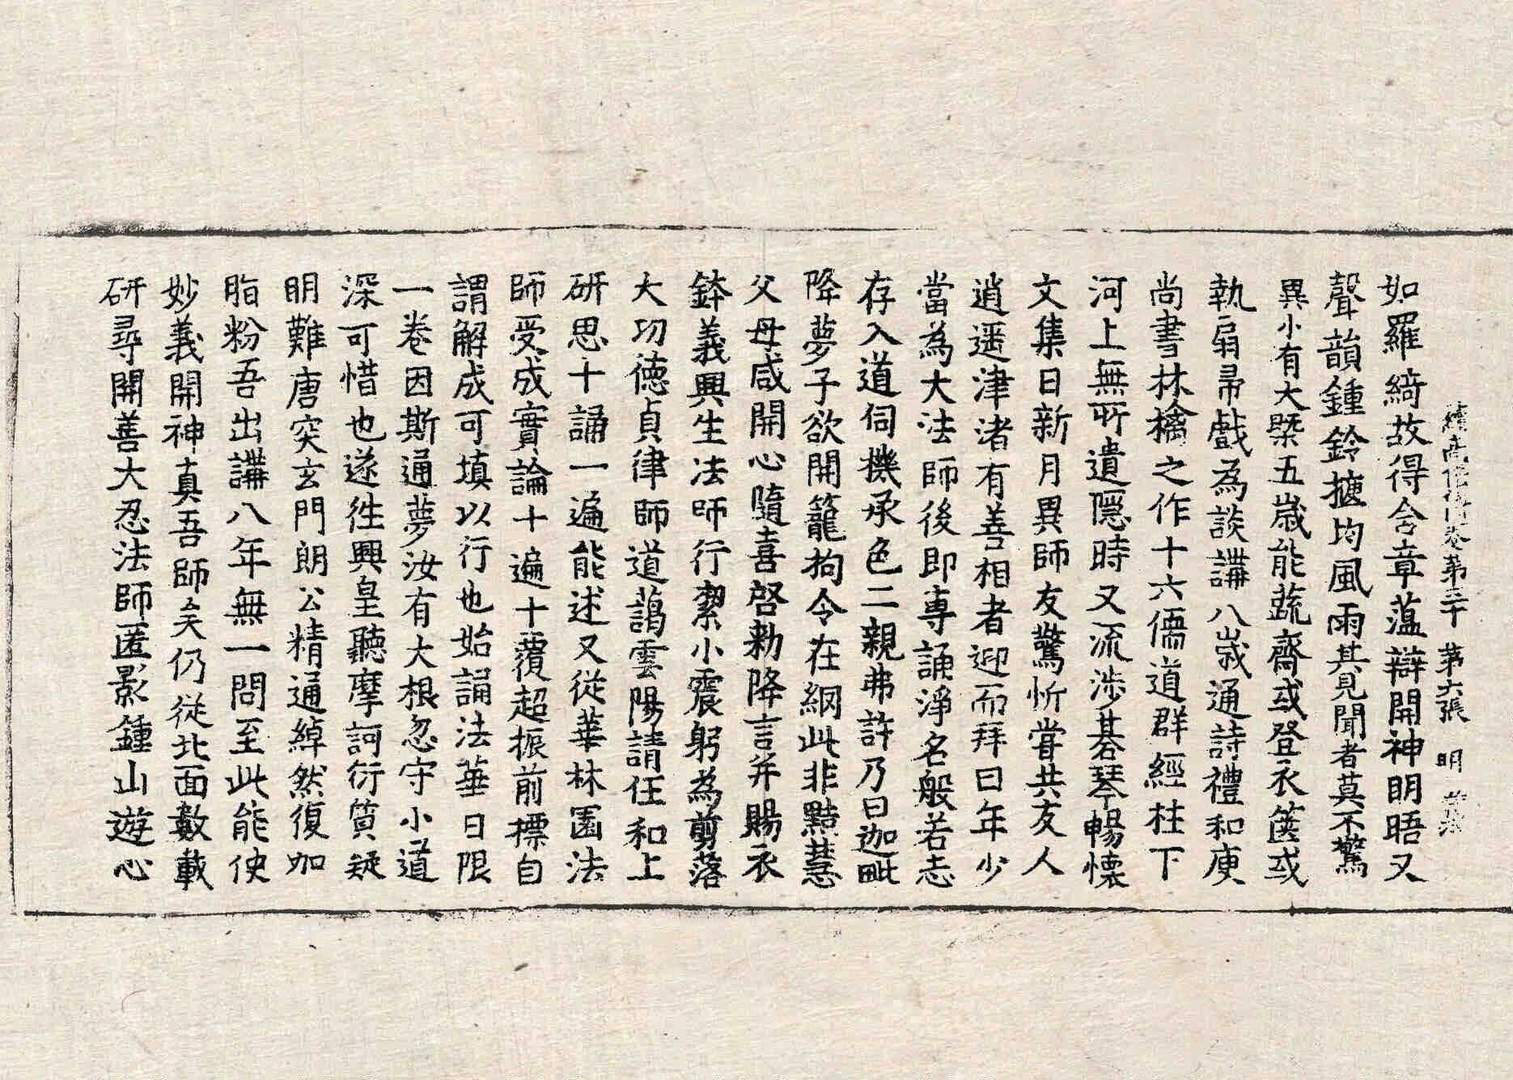 續高僧傳卷第三十 第六張 明
如羅綺故得含章蘊辯開神明晤又
聲韻鍾鈴摠均風雨其見聞者莫不驚
異小有大㮣五歲能蔬齋或登衣篋或
執扇帚戲為談講八歲通詩禮和庾
尚書林檎之作十六儒道群經柱下
河上無所遺隱時又流涉碁琴暢懷
文集日新月異師友驚忻甞共友人
逍遥津渚有善相者迎而拜曰年少
當為大法師後即專誦淨名般若志
存入道伺機承色二親弗許乃曰迦毗
降夢子欲開籠拘令在網此非黠慧
父母咸開心隨喜啓勅降言并賜衣
鉢義興生法師行潔小震躬為剪落
大功德貞律師道藹雲陽請任和上
研思十誦一遍能述又從華林園法
師受成實論十遍十覆超振前摽自
謂解成可填以行也始誦法華日限
一卷因斯通夢汝有大根忽守小道
深可惜也遂徃興皇聽摩訶衍質疑
明難唐突玄門朗公精通綽然復加
脂粉吾出講八年無一問至此能使
妙義開神真吾師矣仍從北面數載
研尋開善大忍法師匿影鍾山遊心